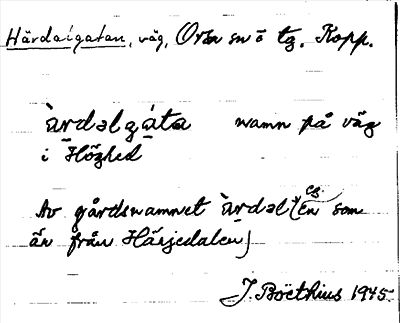 Härdalgatan, väg, Orsa sn ö tg. Kopp.
ärdəlgata namn på väg
i Höghed
Av gårdsnamnet ärdəl (eg. en som
är från Härjedalen)
J. Boëthius 1945.